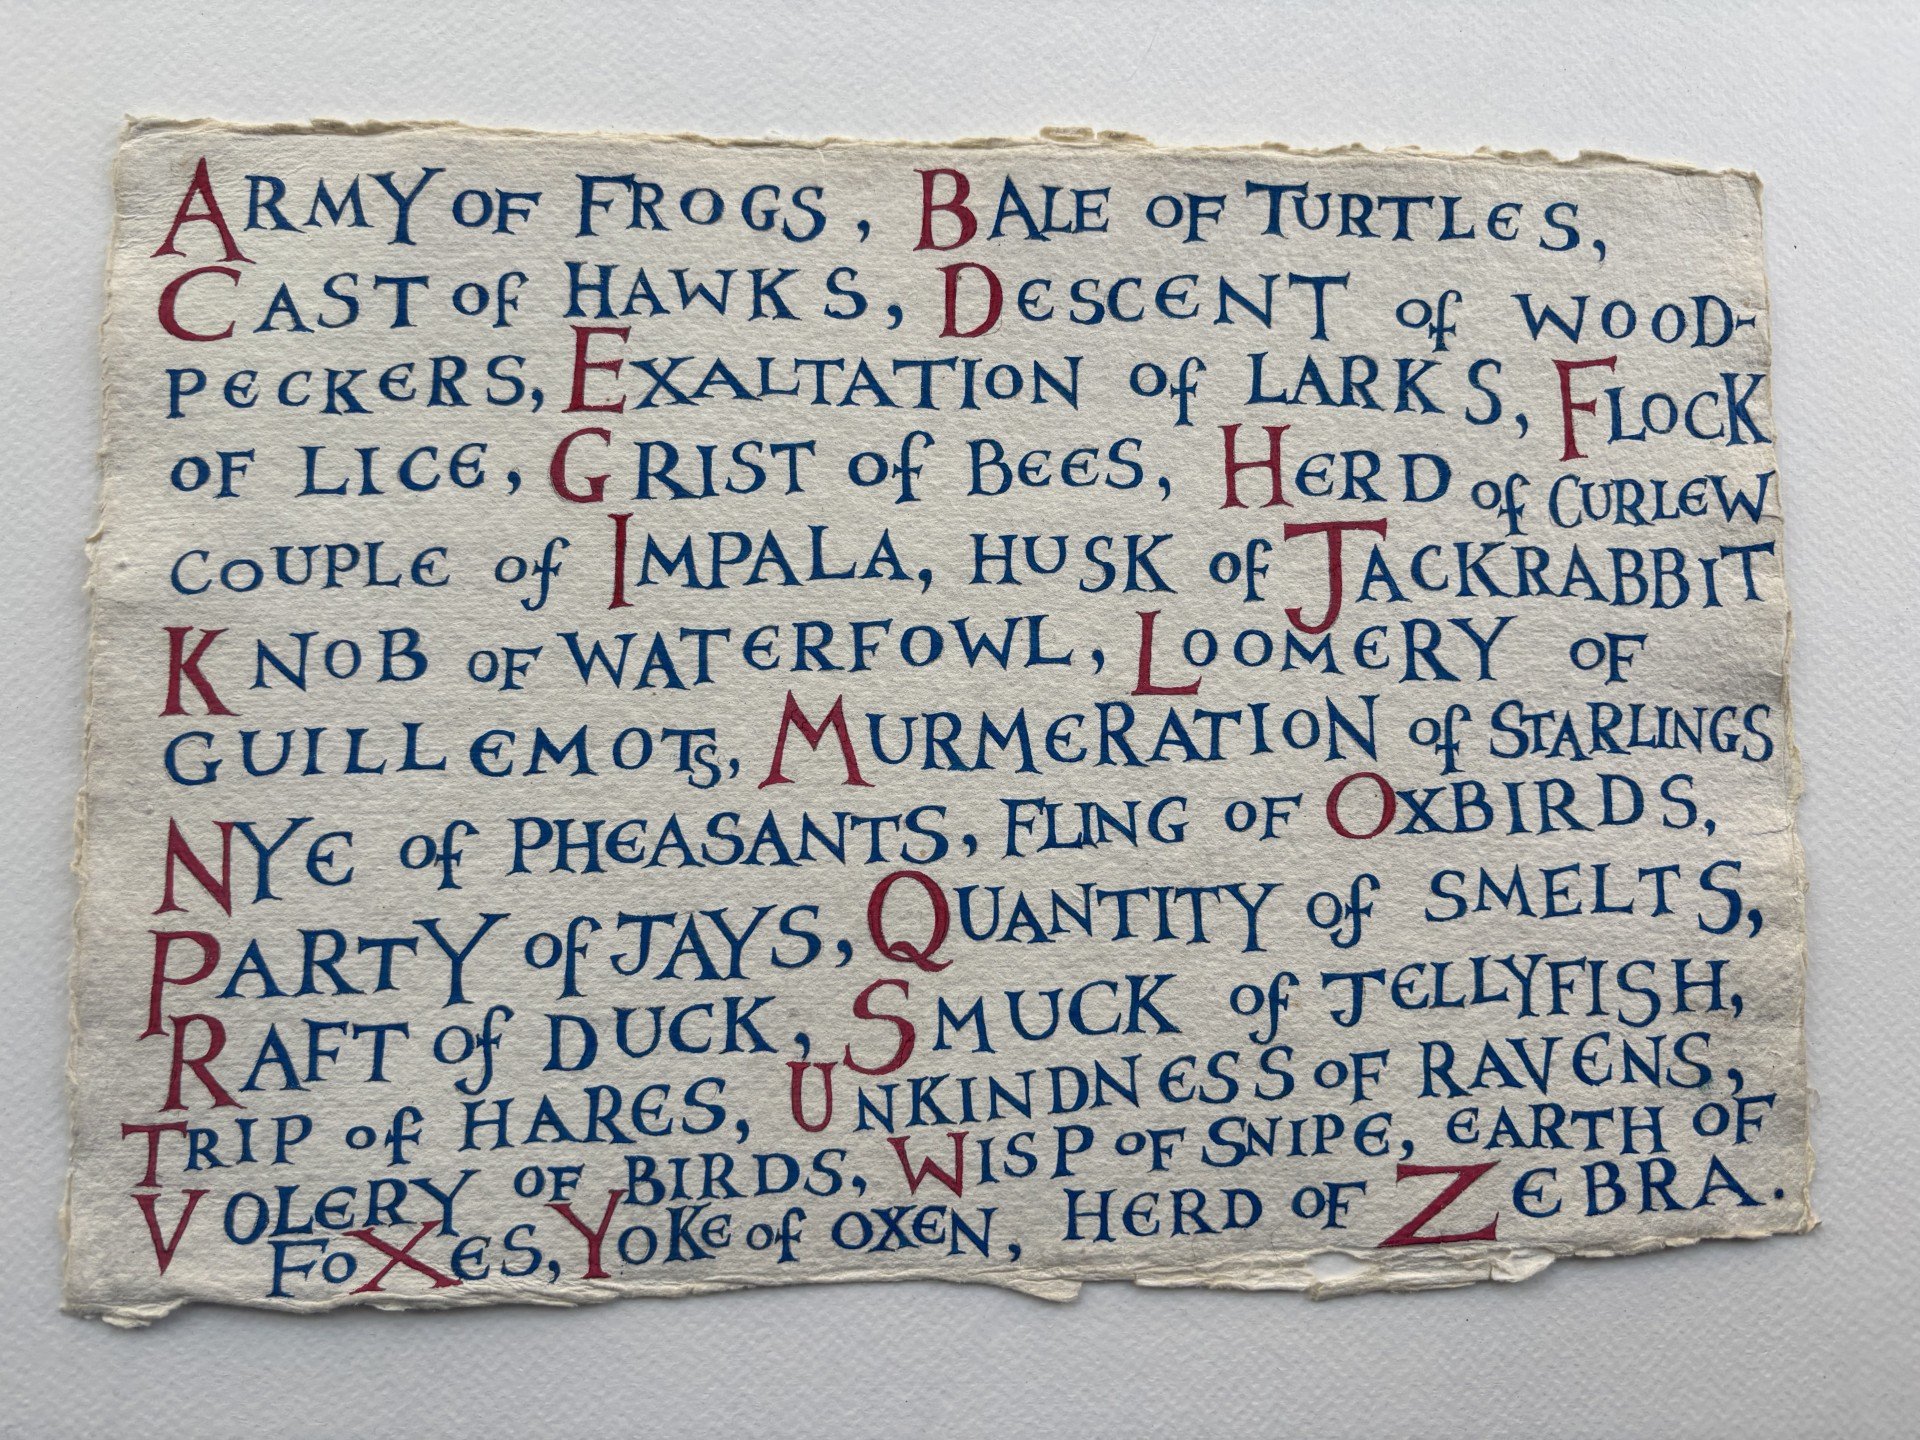 ARMY OF FROGS, BALE OF TURTLES,
CAST of HAWKS, DESCENT of WOOD-
PECKERS, EXALTATION of LARKS, FLOCK
OF LICE, GRIST of BEES, HERD of CURLEW
COUPLE of IMPALA, HUSK of JACKRABBIT
KNOB OF WATERFOWL, LOOMERY OF
GUILLEMOTS, MURMERATION of STARLINGS
NYE of PHEASANTS, FLING OF OXBIRDS,
PARTY of JAYS, QUANTITY of SMELTS,
RAFT of DUCK, SMUCK of JELLYFISH,
TRIP of HARES, UNKINDNESS OF RAVENS,
VOLERY OF BIRDS, WISP OF SNIPE, EARTH OF
FOXES, YOKE of OXEN, HERD OF ZEBRA.